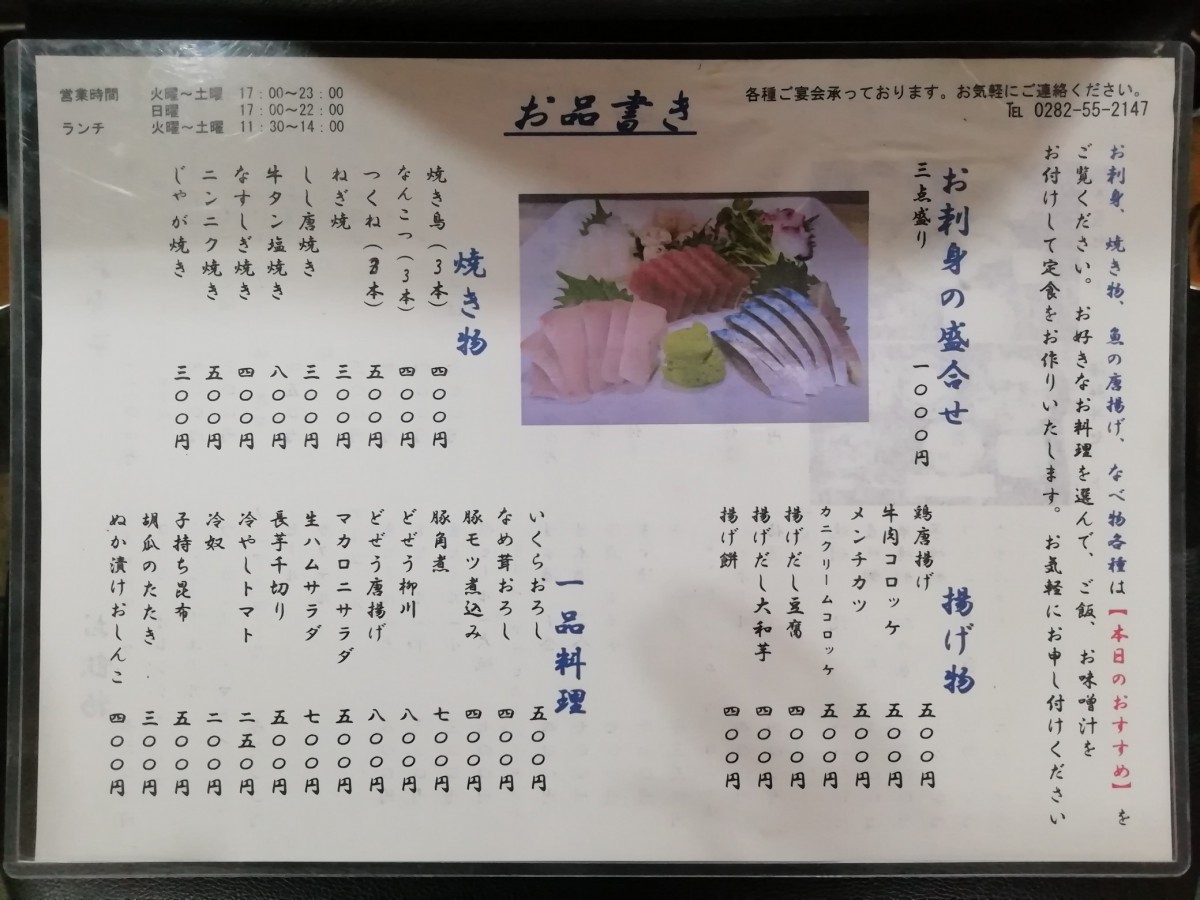 営業時間 火曜～土曜 17：00～23：00
日曜 17：00～22：00
ランチ 火曜～土曜 11：30～14：00
お品書き
各種ご宴会承っております。お気軽にご連絡ください。
℡ 0282-55-2147
お刺身、焼き物、魚の唐揚げ、なべ物各種は【本日のおすすめ】を
ご覧ください。お好きなお料理を選んで、ご飯、お味噌汁を
お付けして定食をお作りいたします。お気軽にお申し付けください
お刺身の盛合せ
三点盛り 一〇〇〇円
焼き物
焼き鳥（3本） 四〇〇円
なんこつ（3本） 四〇〇円
つくね（3本） 五〇〇円
ねぎ焼 三〇〇円
しし唐焼き 三〇〇円
牛タン塩焼き 八〇〇円
なすしぎ焼き 四〇〇円
ニンニク焼き 五〇〇円
じゃが焼き 三〇〇円
揚げ物
鶏唐揚げ 五〇〇円
牛肉コロッケ 五〇〇円
メンチカツ 五〇〇円
カニクリームコロッケ 五〇〇円
揚げだし豆腐 四〇〇円
揚げだし大和芋 四〇〇円
揚げ餅 四〇〇円
一品料理
いくらおろし 五〇〇円
なめ茸おろし 四〇〇円
豚モツ煮込み 四〇〇円
豚角煮 七〇〇円
どぜう柳川 八〇〇円
どぜう唐揚げ 八〇〇円
マカロニサラダ 五〇〇円
生ハムサラダ 七〇〇円
長芋千切り 五〇〇円
冷やしトマト 二五〇円
冷奴 二〇〇円
子持ち昆布 五〇〇円
胡瓜のたたき 三〇〇円
ぬか漬けおしんこ 四〇〇円